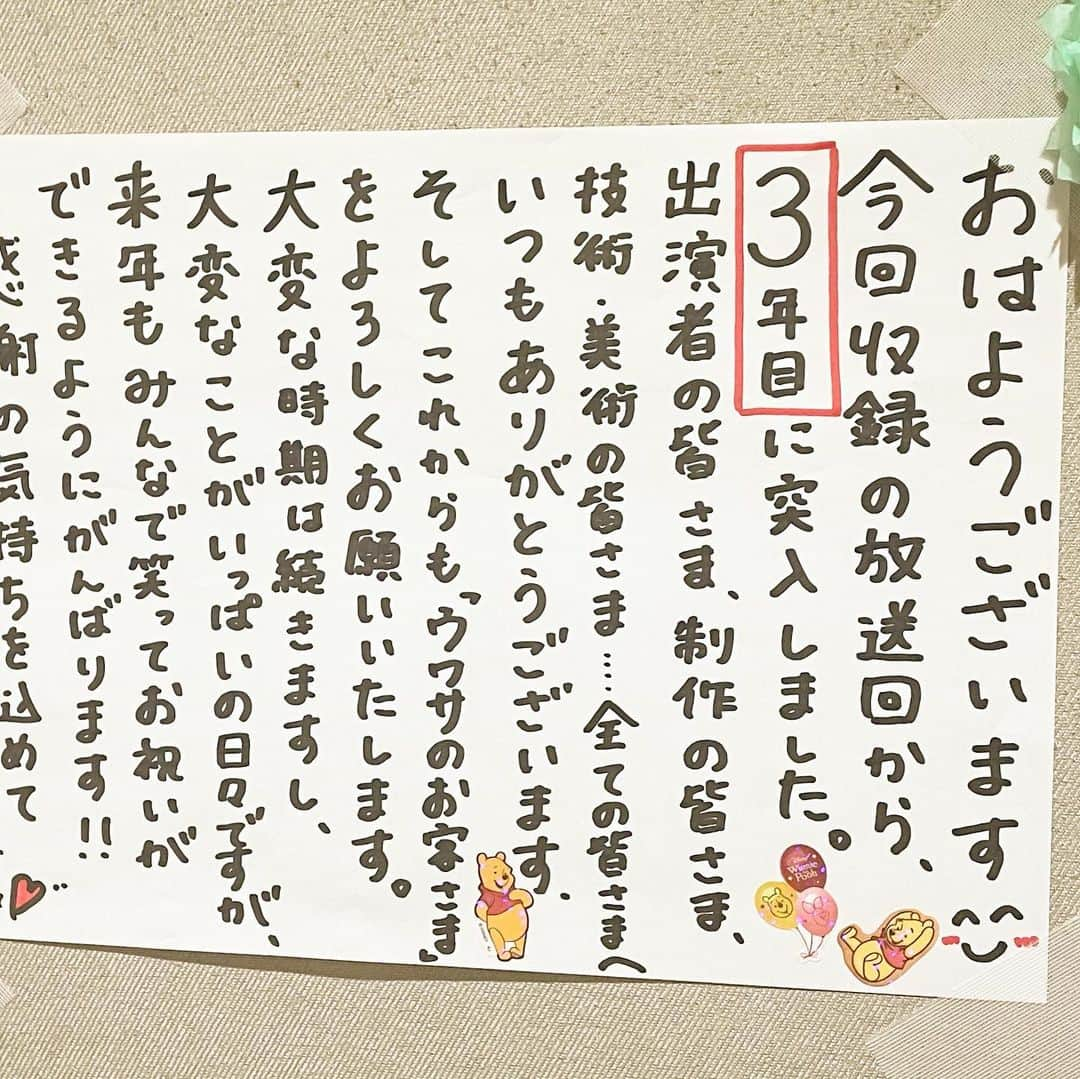 おはようございます
今回収録の放送回から、
3年目に突入しました。
出演者の皆さま、制作の皆さま、
技術・美術の皆さま……全ての皆さまへ
いつもありがとうございます、
そしてこれからも「ウワサのお客さま」
をよろしくお願いいたします。
大変な時期は続きますし、
大変なことがいっぱいの日々ですが、
来年もみんなで笑ってお祝いが
できるようにがんばります!!
感謝の気持ちを込めて
Disney
Winnie the Pooh